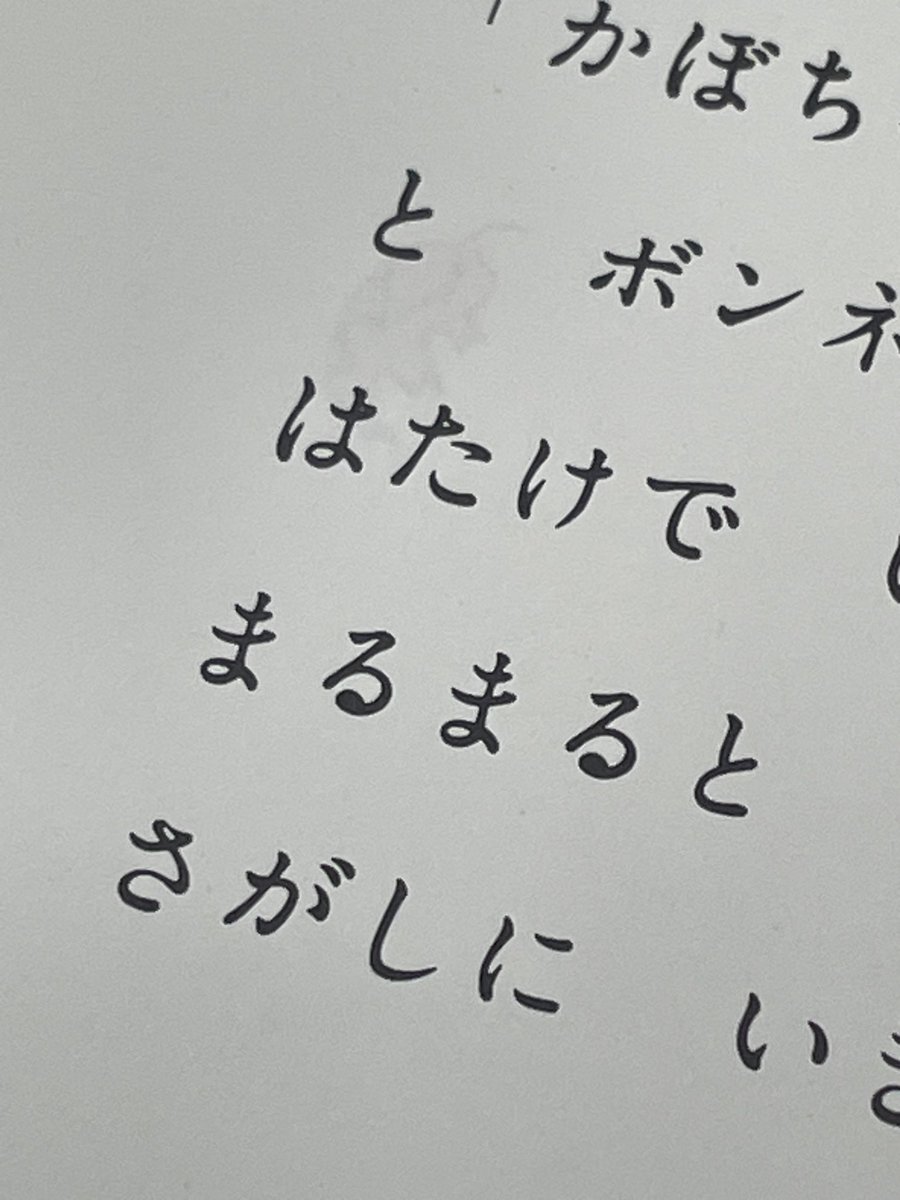 「かぼち
と ボンネ
はたけで
まるまると
さがしに いき